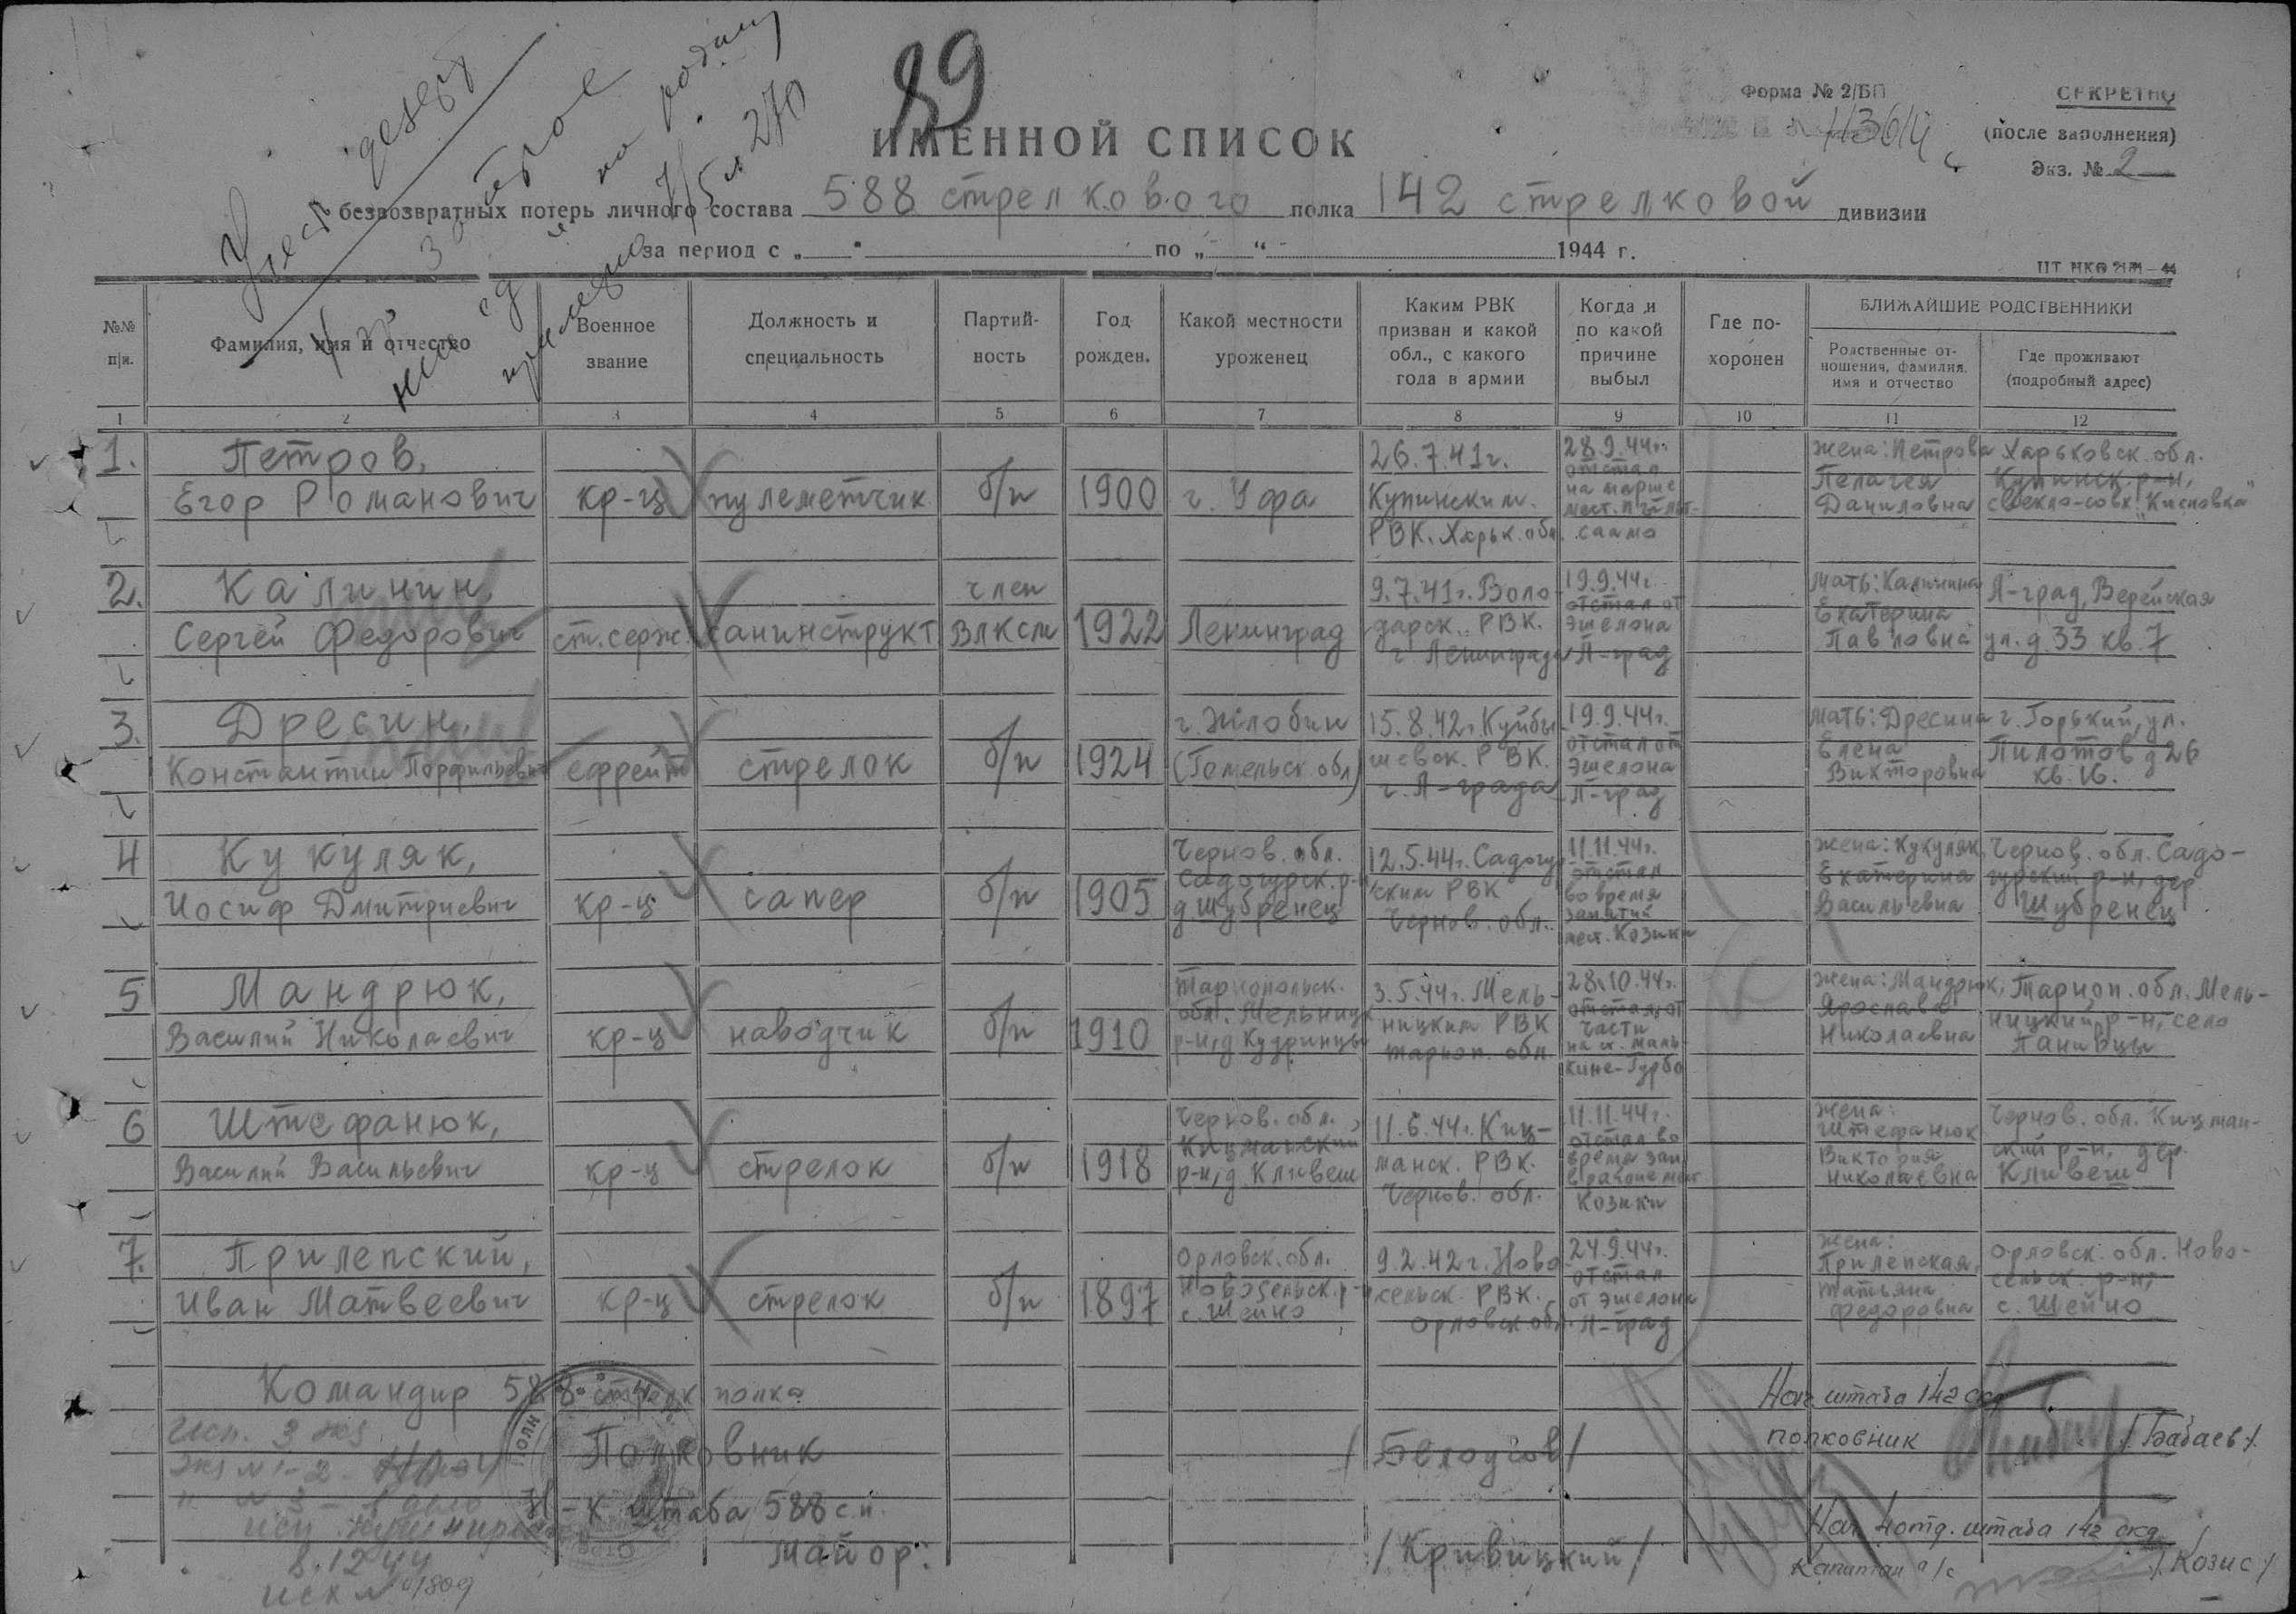 89
Форма № 2/БП
СЕКРЕТНО
(после заполнения)
Экз. № 2
ИМЕННОЙ СПИСОК
безвозвратных потерь личного состава 588 стрелкового полка 142 стрелковой дивизии
за период с „ “ по „ “ 1944 г.
№№ п|п.
Фамилия, имя и отчество
Военное звание
Должность и специальность
Партий-
ность
Год рожден.
Какой местности уроженец
Каким РВК призван и какой обл., с какого года в армии
Когда и по какой причине выбыл
Где по-
хоронен
БЛИЖАЙШИЕ РОДСТВЕННИКИ
Родственные от-
ношения, фамилия, имя и отчество
Где проживают (подробный адрес)
1 2 3 4 5 6 7 8 9 10 11 12
1. Петров, Егор Романович
кр-ц
пулеметчик
б/п
1900
г. Уфа
26.7.41г. Купинским РВК. Харьк. обл.
28.9.44г. отстал на марше
жена: Петрова Пелагея Даниловна
Харьковск. обл. Купинск. р-н, свекло-совх. „Кисловка“
2. Калинин, Сергей Федорович
ст. серж.
санинструкт
член ВЛКСМ
1922
Ленинград
9.7.41г. Воло-
дарск. РВК. г. Ленинграда
19.9.44г. отстал от эшелона Л-град
мать: Калинина Екатерина Павловна
Л-град, Верейская ул. д 33 кв. 7
3. Дресин, Константин Порфильевич
ефрейт
стрелок
б/п
1924
г. Жлобин (Гомельск. обл)
15.8.42г. Куйбы-
шевск. РВК. г. Л-града
19.9.44г. отстал от эшелона Л-град
мать: Дресина Елена Викторовна
г. Горький, ул. Пилотов д 26 кв. 16.
4 Кукуляк, Иосиф Дмитриевич
кр-ц
сапер
б/п
1905
Чернов. обл. Садогурск. р-н, д Шубренец
12.5.44г. Садогур
ским РВК Чернов. обл.
11.11.44г. отстал во время занятий мест. Козики
жена: Кукуляк, Екатерина Васильевна
Чернов. обл. Садо-
гурский р-н, дер. Шубренец
5 Мандрюк, Василий Николаевич
кр-ц
наводчик
б/п
1910
Тарнопольск. обл. Мельницк р-н, д Кудринцы
3.5.44г. Мель-
ницким РВК тарноп. обл.
28.10.44г. отстал от части
жена: Мандрюк, Ярослава Николаевна
Тарноп. обл. Мель-
ницкий р-н, село Панивцы
6 Штефанюк, Василий Васильевич
кр-ц
стрелок
б/п
1918
Чернов. обл., Кицманский р-н, д Кливеш
11.6.44г. Киц-
манск. РВК. Чернов. обл.
11.11.44г. отстал во время зан. в районе мест Козики
жена: Штефанюк Виктория Николаевна
Чернов. обл. Кицман-
ский р-н, дер. Кливеш
7. Прилепский, Иван Матвеевич
кр-ц
стрелок
б/п
1897
Орловск. обл. Новосельск. р-н с. Шейно
9.2.42г. Ново
сельск. РВК. Орловск обл.
24.9.44г. отстал от эшелона Л-град
жена: Прилепская, Татьяна Федоровна
Орловск. обл. Ново-
сельск. р-н, с. Шейно
Командир 588 стрелк полка
Полковник /Белоусов/
Н-к штаба 588 с.п.
Майор: /Кривицкий/
Нач штаба 142 скд
полковник /Бабаев/.
Нач 4 отд. штаба 142 скд
капитан а/с /Козис/
Исп. 3 экз.
8.12.44
исх № 01809